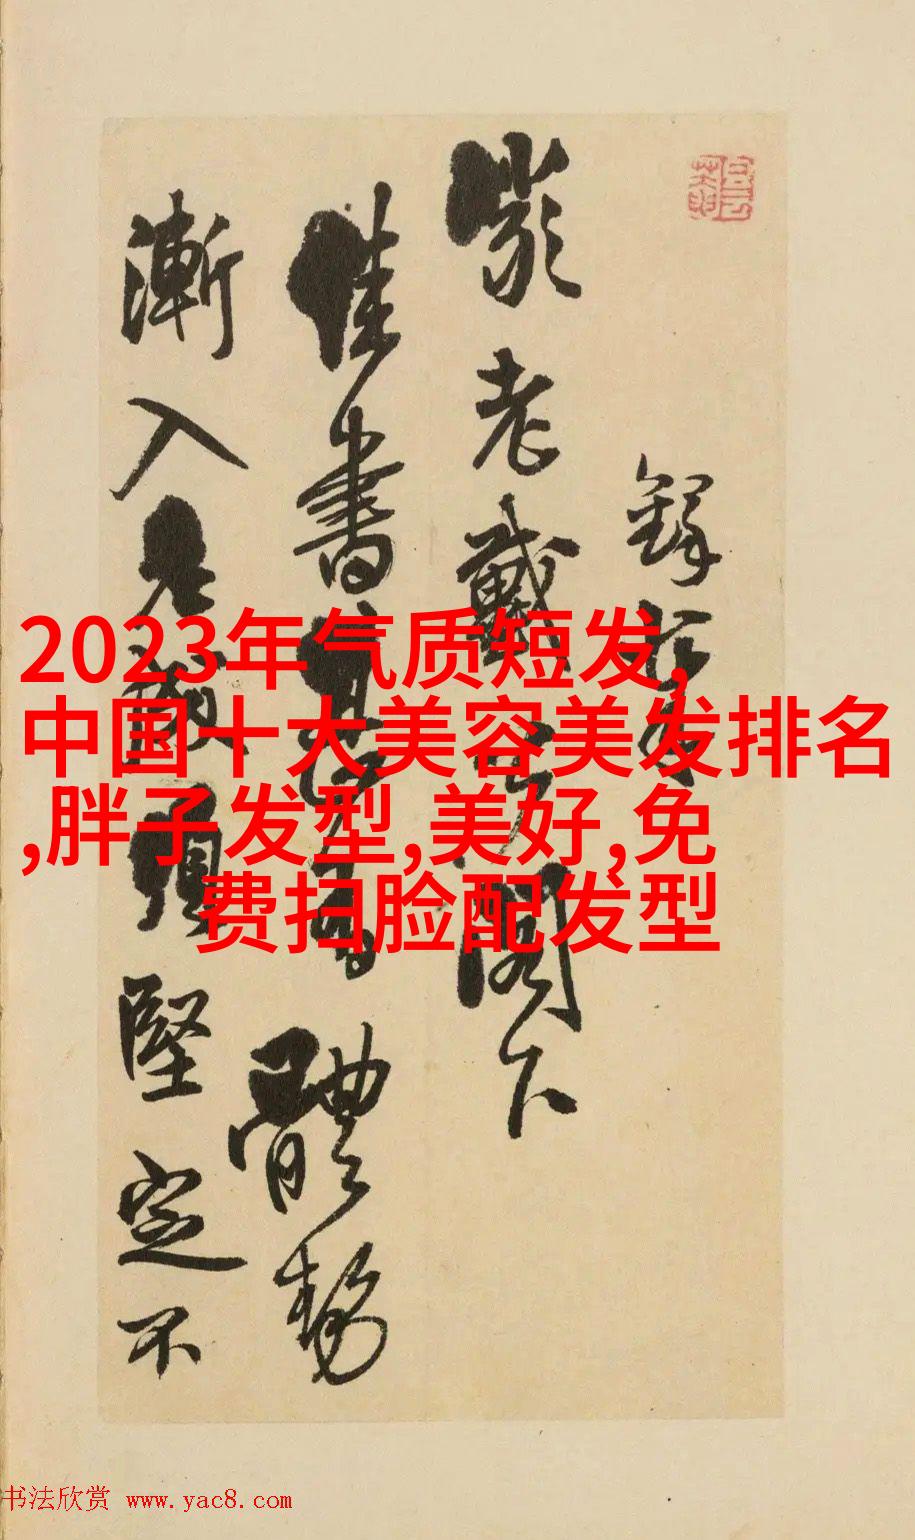 鐸
老戴閣下
佳書書體勢
漸入老頭堅定不
2023年气质短发,
中国十大美容美发排名
,胖子发型,美好,免
费扫脸配发型
书法欣赏 www.yac8.com